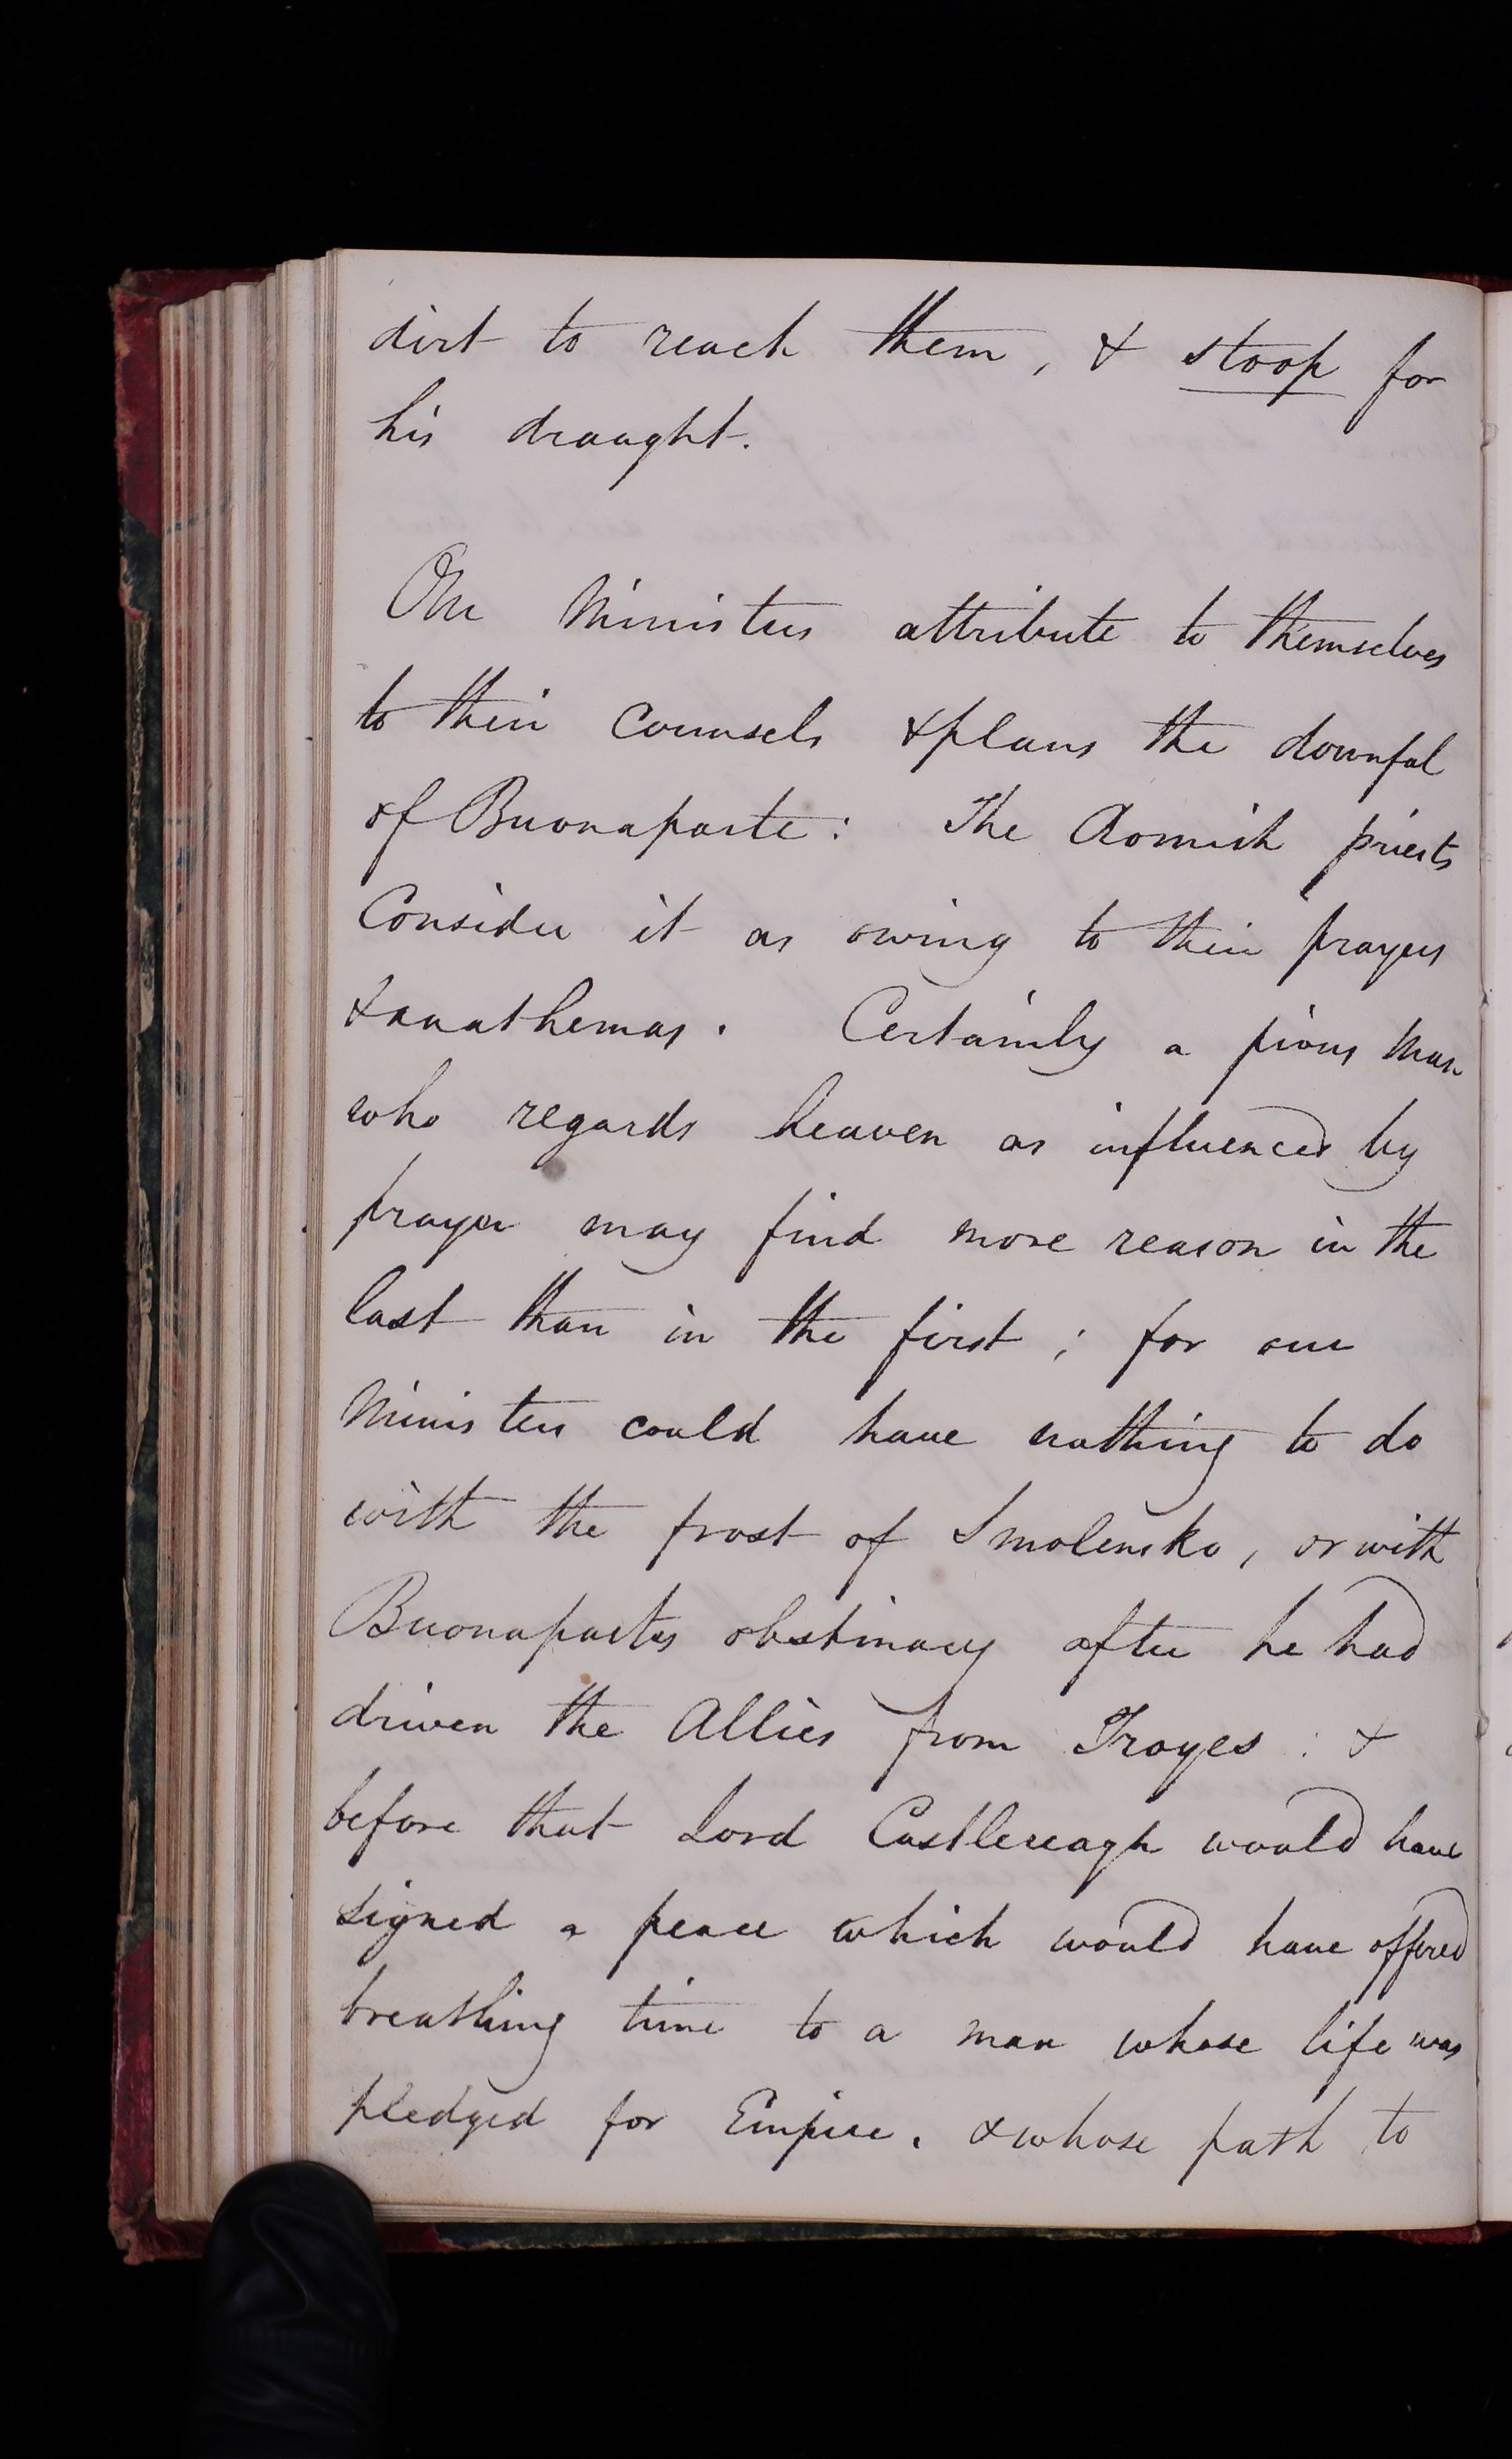 dirt to reach them, & stoop for
his draught.
Our Ministers attribute to themselves
to their counsels & plans the downfal
of Buonaparte: The Romish priests
Consider it as owing to their prayers
& anathemas. Certainly a pious Man
who regards heaven as influenced by
prayer may find more reason in the
last than in the first; for our
Ministers could have nothing to do
with the frost of Smolensko, or with
Buonapartes obstinacy after he had
driven the Allies from Troyes: &
before that Lord Castlereagh would have
signed a peace which would have offered
breathing time to a man whose life was
pledged for Empire, & whose path to